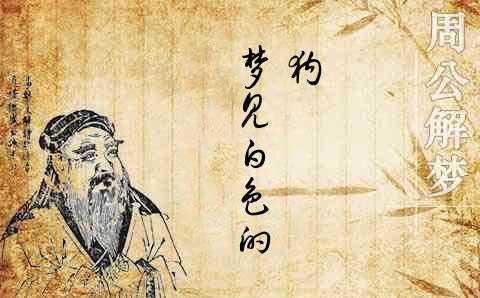 周公解梦
梦见白色的
狗